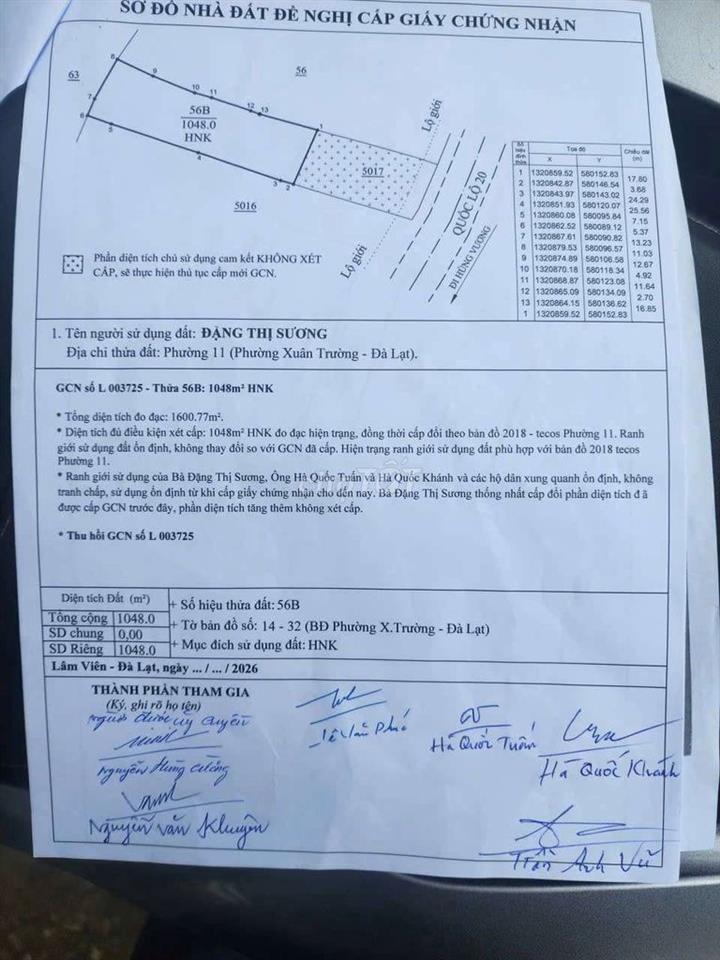 SƠ ĐỒ NHÀ ĐẤT ĐỀ NGHỊ CẤP GIẤY CHỨNG NHẬN
63
56
8
9
10
11
12
13
1
7
6
5
4
3
2
56B
1048.0
HNK
5017
5016
Lộ giới
Lộ giới
QUỐC LỘ 20
ĐI HÙNG VƯƠNG
Phần diện tích chủ sử dụng cam kết KHÔNG XÉT
CẤP, sẽ thực hiện thủ tục cấp mới GCN.
Số hiệu đỉnh thửa
Tọa độ
Chiều dài (m)
X Y
1 1320859.52 580152.83
17.80
2 1320842.87 580146.54
3.68
3 1320843.97 580143.02
24.29
4 1320851.93 580120.07
25.56
5 1320860.08 580095.84
7.15
6 1320862.52 580089.12
5.37
7 1320867.61 580090.82
13.23
8 1320879.53 580096.57
11.03
9 1320874.89 580106.58
12.67
10 1320870.18 580118.34
4.92
11 1320868.87 580123.08
11.64
12 1320865.09 580134.09
2.70
13 1320864.15 580136.62
16.85
1 1320859.52 580152.83
1. Tên người sử dụng đất: ĐẶNG THỊ SƯƠNG
Địa chỉ thửa đất: Phường 11 (Phường Xuân Trường - Đà Lạt).
GCN số L 003725 - Thửa 56B: 1048m² HNK
* Tổng diện tích đo đạc: 1600.77m².
* Diện tích đủ điều kiện xét cấp: 1048m² HNK đo đạc hiện trạng, đồng thời cấp đổi theo bản đồ 2018 - tecos Phường 11. Ranh
giới sử dụng đất ổn định, không thay đổi so với GCN đã cấp. Hiện trạng ranh giới sử dụng đất phù hợp với bản đồ 2018 tecos
Phường 11.
* Ranh giới sử dụng của Bà Đặng Thị Sương, Ông Hà Quốc Tuấn và Hà Quốc Khánh và các hộ dân xung quanh ổn định, không
tranh chấp, sử dụng ổn định từ khi cấp giấy chứng nhận cho đến nay. Bà Đặng Thị Sương thống nhất cấp đổi phần diện tích đã
được cấp GCN trước đây, phần diện tích tăng thêm không xét cấp.
* Thu hồi GCN số L 003725
Diện tích Đất (m²)
Tổng cộng 1048.0
SD chung 0,00
SD Riêng 1048.0
+ Số hiệu thửa đất: 56B
+ Tờ bản đồ số: 14 - 32 (BĐ Phường X.Trường - Đà Lạt)
+ Mục đích sử dụng đất: HNK
Lâm Viên - Đà Lạt, ngày ... / ... / 2026
THÀNH PHẦN THAM GIA
(Ký, ghi rõ họ tên)
Người được ủy quyền
Nguyễn Hùng Cường
Nguyễn Văn Khuyên
Lê Văn Phú
Hà Quốc Tuấn
Hà Quốc Khánh
Trần Anh Vũ